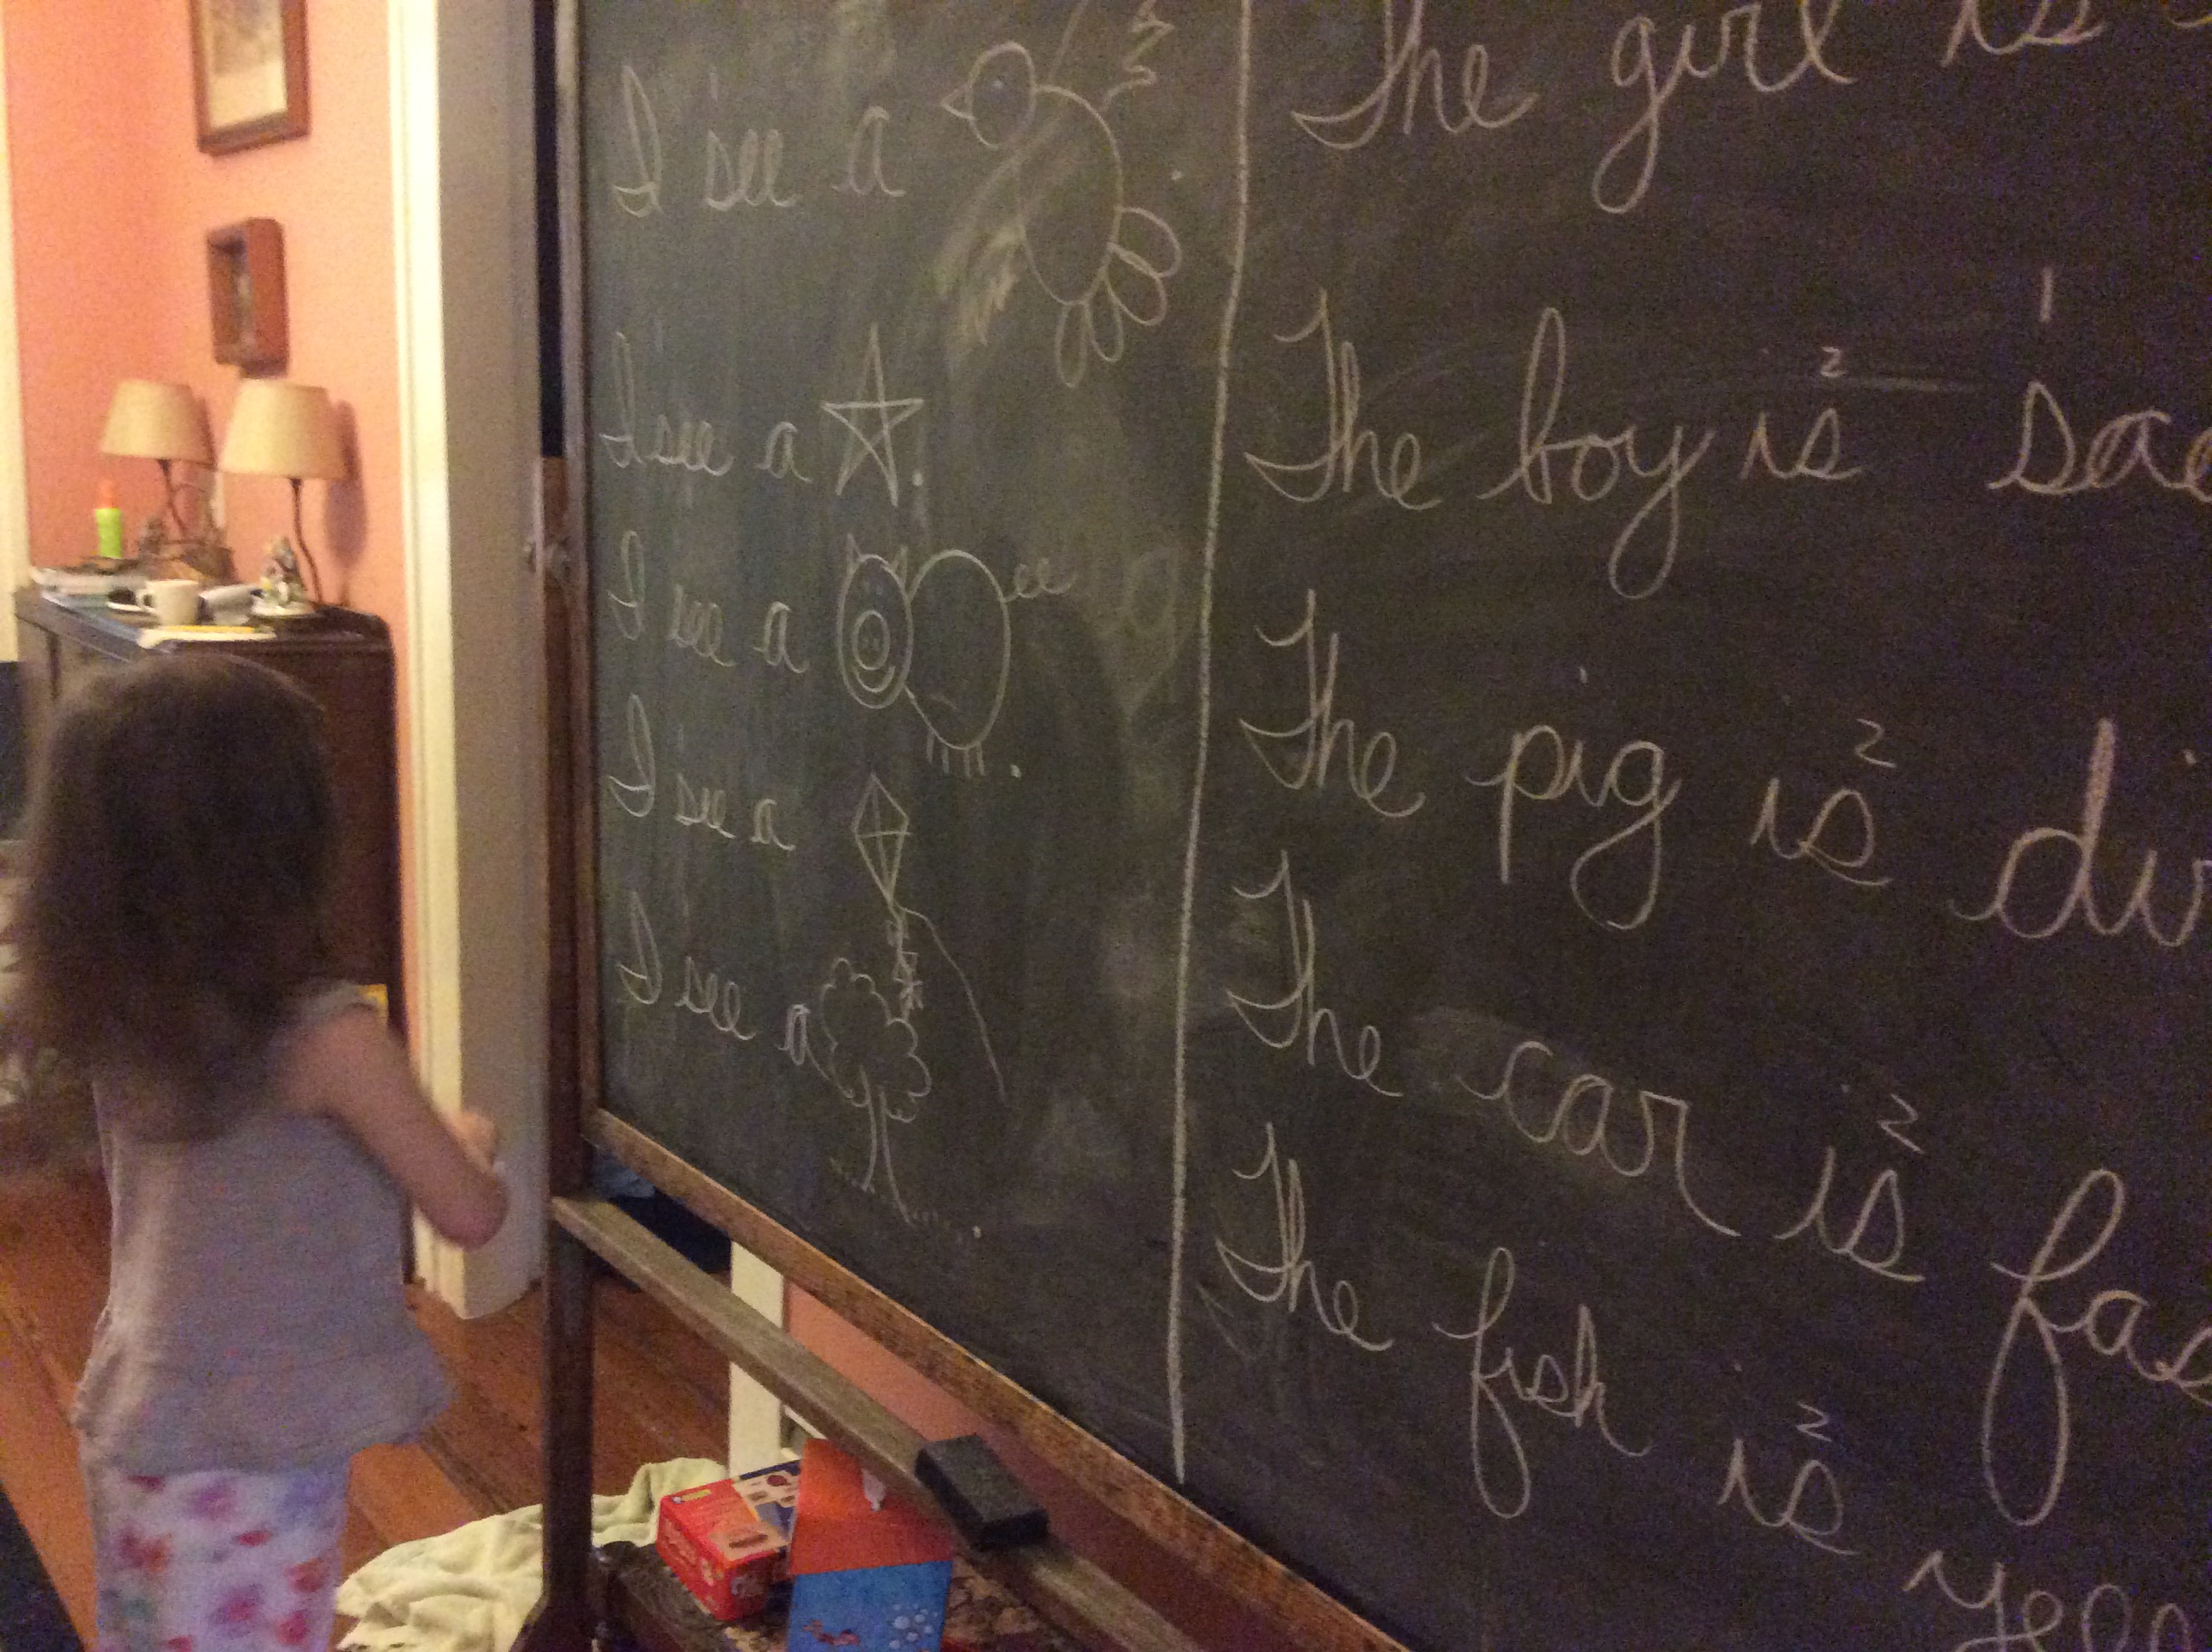 I see a
I see a .
I see a .
I see a
I see a .
The girl is
1
2
The boy is
2
The pig is
2
The car is
The fish is
2